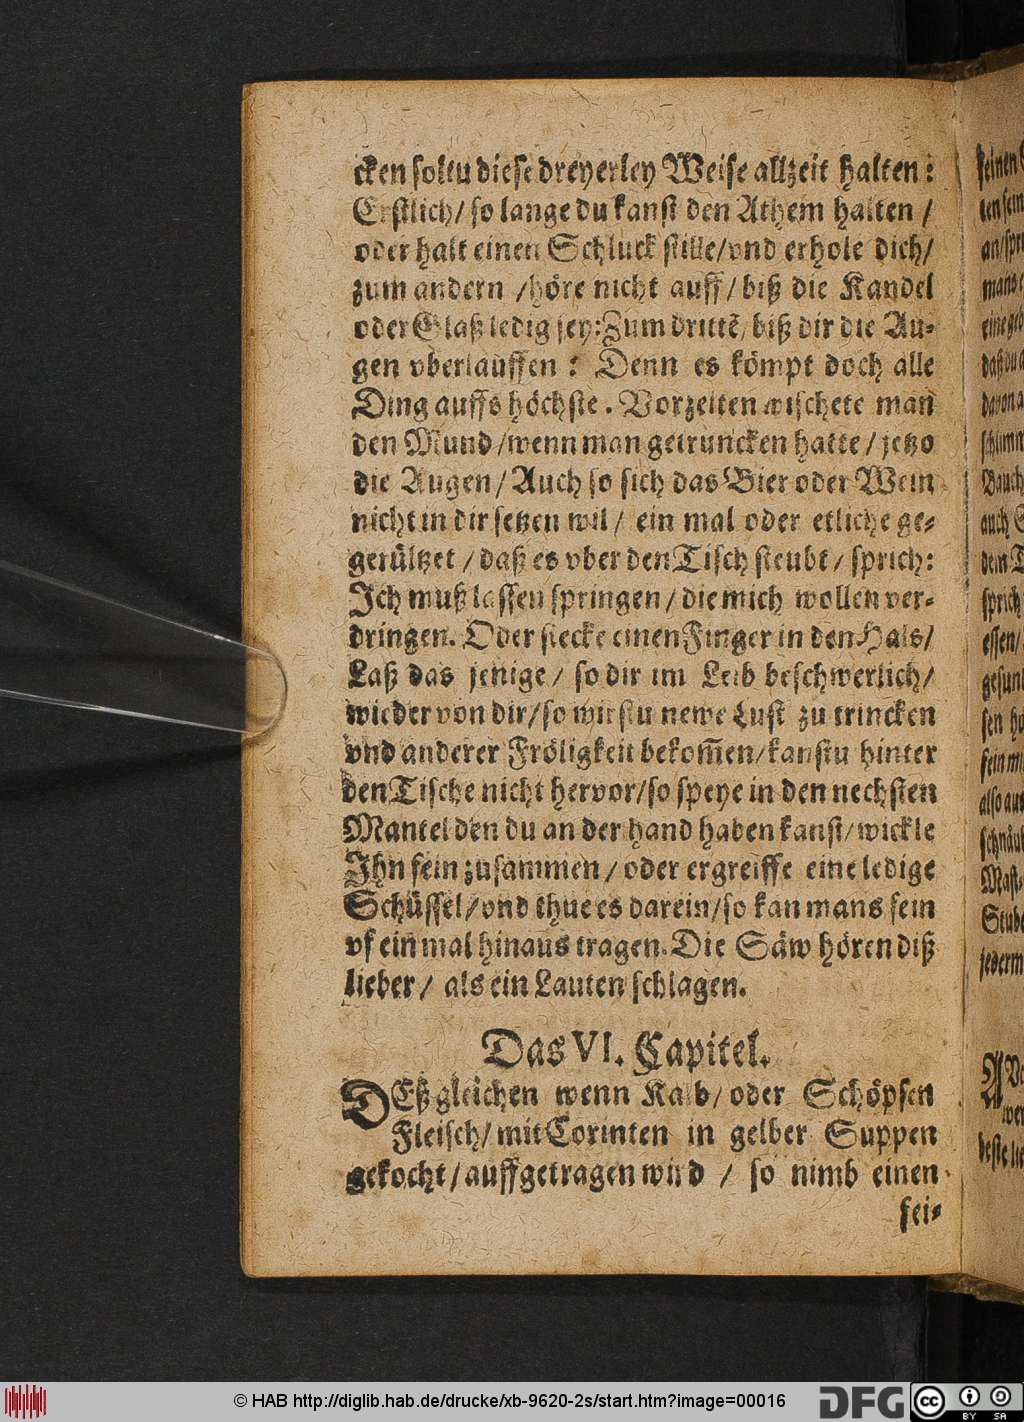 cken soltu diese dreyerley Weise allzeit halten:
Erstlich/ so lange du kanst den Athem halten /
oder halt einen Schluck stille/vnd erhole dich/
zum andern /höre nicht auff/ biß die Kandel
oder Glaß ledig sey: Zum drittē/ biß dir die Au-
gen vberlauffen: Denn es kömpt doch alle
Ding auffs höchste. Vorzeiten wischete man
den Mund/wenn man getruncken hatte/ jetzo
die Augen/ Auch so sich das Bier oder Wein
nicht in dir setzen wil/ ein mal oder etliche ge-
gerültzet / daß es vber den Tisch steubt/ sprich:
Ich muß lassen springen/ die mich wollen ver-
dringen. Oder stecke einen Finger in den Hals/
Laß das jenige/ so dir im Leib beschwerlich/
wieder von dir/so wirstu newe Lust zu trincken
vnd anderer Fröligkeit bekom̃en/kanstu hinter
den Tische nicht hervor/so speye in den nechsten
Mantel den du an der hand haben kanst/wickle
Ihn fein zusammen/ oder ergreiffe eine ledige
Schüssel/vnd thue es darein/so kan mans fein
vf ein mal hinaus tragen. Die Säw hören diß
lieber/ als ein Lauten schlagen.
Das VI. Capitel.
DEßgleichen wenn Kalb/ oder Schöpsen
Fleisch/ mit Corinten in gelber Suppen
gekocht/auffgetragen wird / so nimb einen
fei-
© HAB http://diglib.hab.de/drucke/xb-9620-2s/start.htm?image=00016
DFG
cc
BY SA